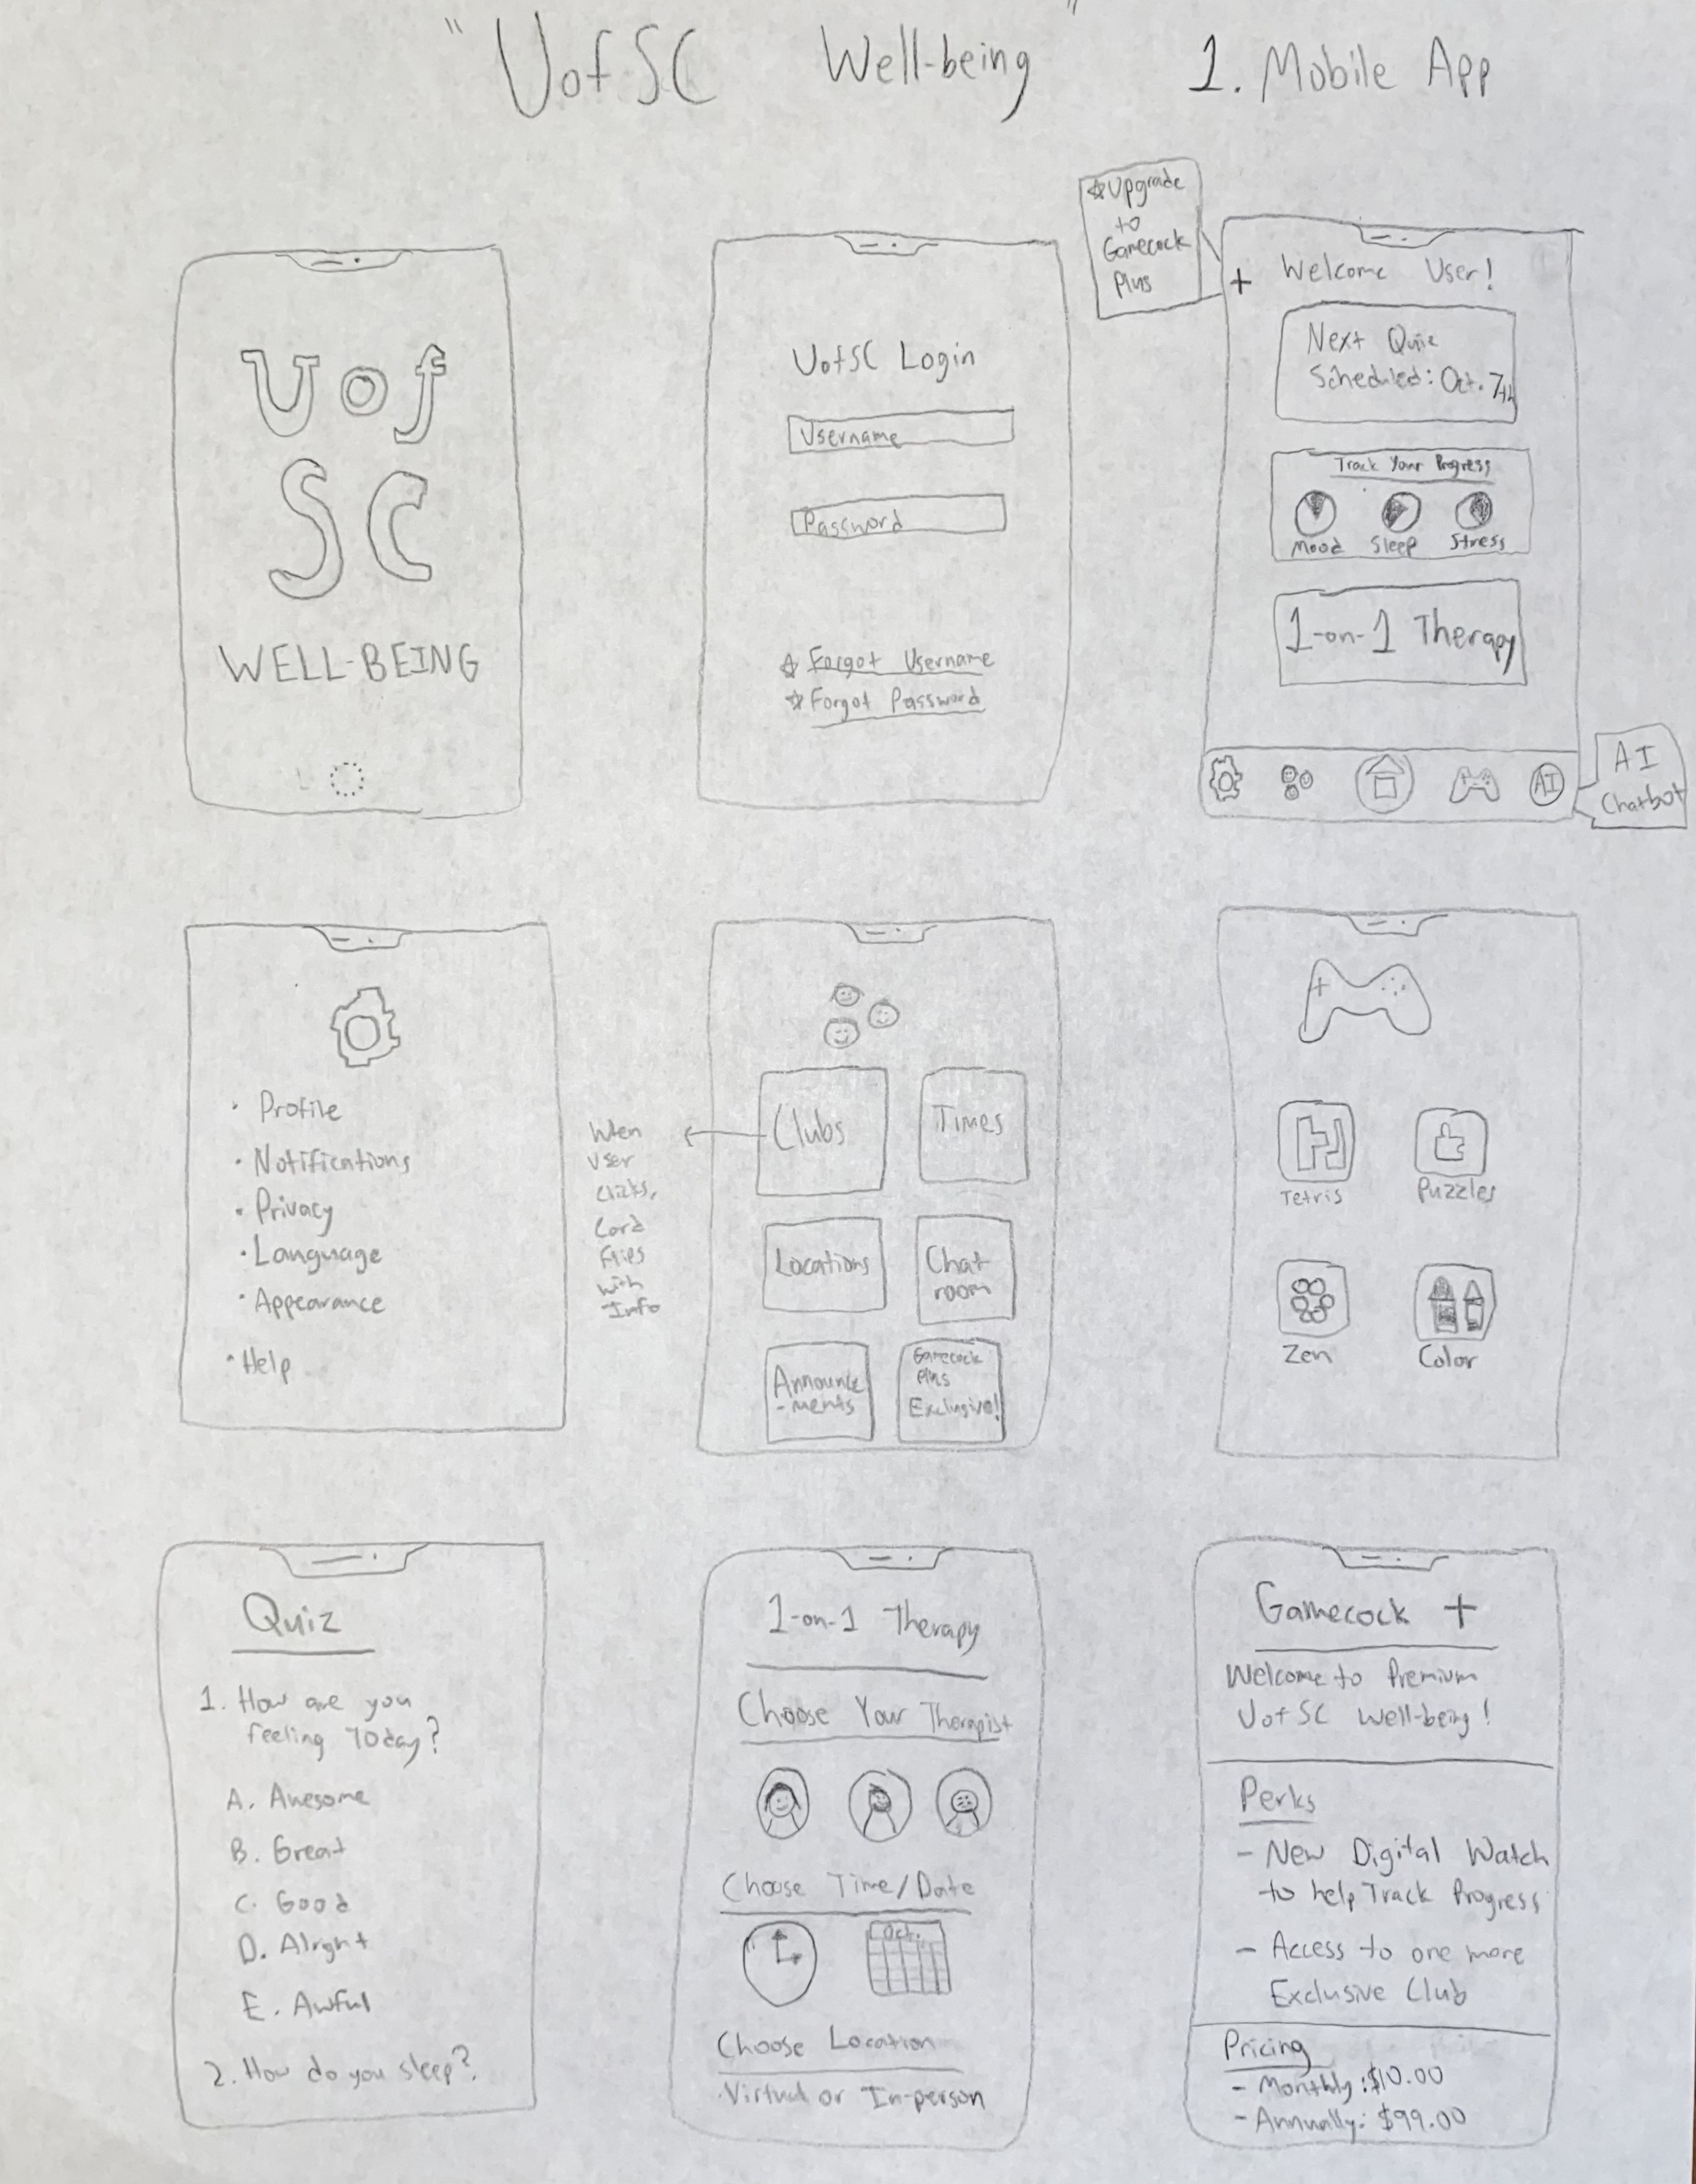 "UofSC Well-being" 1. Mobile App
Uof
SC
WELL-BEING
UofSC Login
Username
Password
☆ Forgot Username
☆ Forgot Password
☆Upgrade
to
Gamecock
Plus
+ Welcome User!
Next Quiz
Scheduled: Oct. 7th
Track Your Progress
Mood Sleep Stress
1-on-1 Therapy
AI
AI
Chatbot
· Profile
· Notifications
· Privacy
· Language
· Appearance
· Help
When
user
clicks,
Card
Flips
with
Info
Clubs
Times
Locations
Chat
room
Announce
-ments
Gamecock
Plus
Exclusive!
Tetris
Puzzles
Zen
Color
Quiz
1. How are you
feeling Today?
A. Awesome
B. Great
C. Good
D. Alright
E. Awful
2. How do you sleep?
1-on-1 Therapy
Choose Your Therapist
Choose Time/Date
Oct.
Choose Location
·Virtual or In-person
Gamecock +
Welcome to Premium
UofSC Well-being!
Perks
- New Digital Watch
to help Track Progress
- Access to one more
Exclusive Club
Pricing
- Monthly: $10.00
- Annually: $99.00